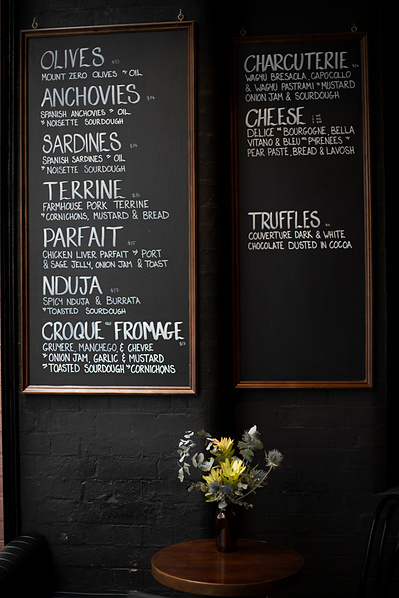 OLIVES $10
MOUNT ZERO OLIVES OIL
ANCHOVIES
SPANISH ANCHOVIES OIL
NOISETTE SOURDOUGH
SARDINES
SPANISH SARDINES OIL
NOISETTE SOURDOUGH
TERRINE
FARMHOUSE PORK TERRINE
CORNICHONS, MUSTARD & BREAD
PARFAIT
CHICKEN LIVER PARFAIT PORT
& SAGE JELLY, ONION JAM & TOAST
NDUJA
SPICY NDUJA & BURRATA
TOASTED SOURDOUGH
CROQUE FROMAGE
GRUYERE, MANCHEGO, & CHEVRE
ONION JAM, GARLIC & MUSTARD
TOASTED SOURDOUGH CORNICHONS
CHARCUTERIE
WAGYU BRESAOLA, CAPOCOLLO
& WAGYU PASTRAMI MUSTARD
ONION JAM & SOURDOUGH
CHEESE
DELICE BOURGOGNE, BELLA
VITANO & BLEU PYRENEES
PEAR PASTE, BREAD & LAVOSH
TRUFFLES
COUVERTURE DARK & WHITE
CHOCOLATE DUSTED IN COCOA